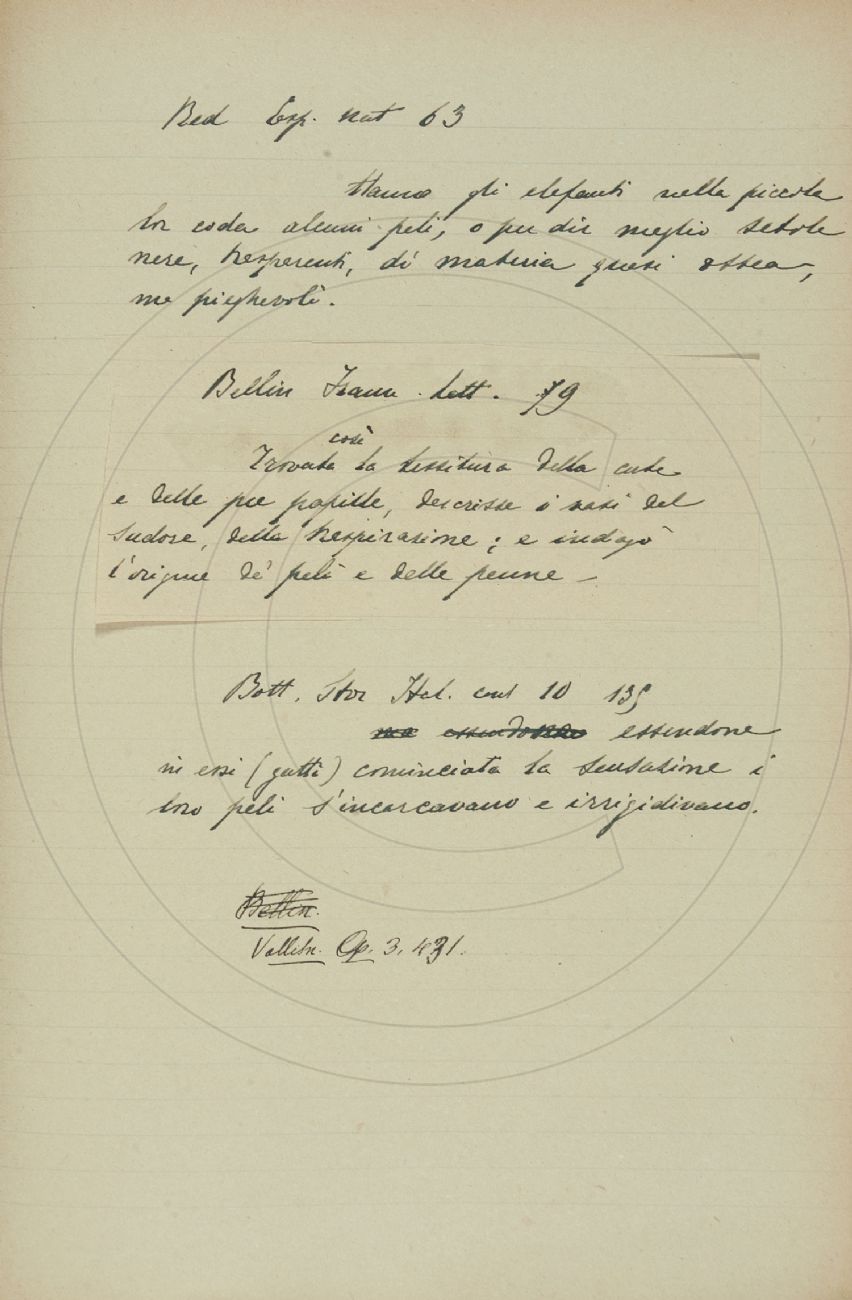 Red Esp. nat 63
Hanno gli elefanti nella piccola
lor coda alcuni peli, o per dir meglio setole
nere, trasparenti, di materia quasi ossea,
ma pieghevoli.
Bellin Franc. Lett. 79
così
Trovata la tessitura della cute
e delle sue papille, descrisse i vasi del
sudore, della traspirazione; e indagò
l'origine de' peli e delle penne –
Bott. Stor Ital. cont 10 135
essendone
in essi (gatti) cominciata la sensazione i
loro peli s'incorcavano e irrigidivano.
Bellin.
Vallisn. Op. 3. 431.